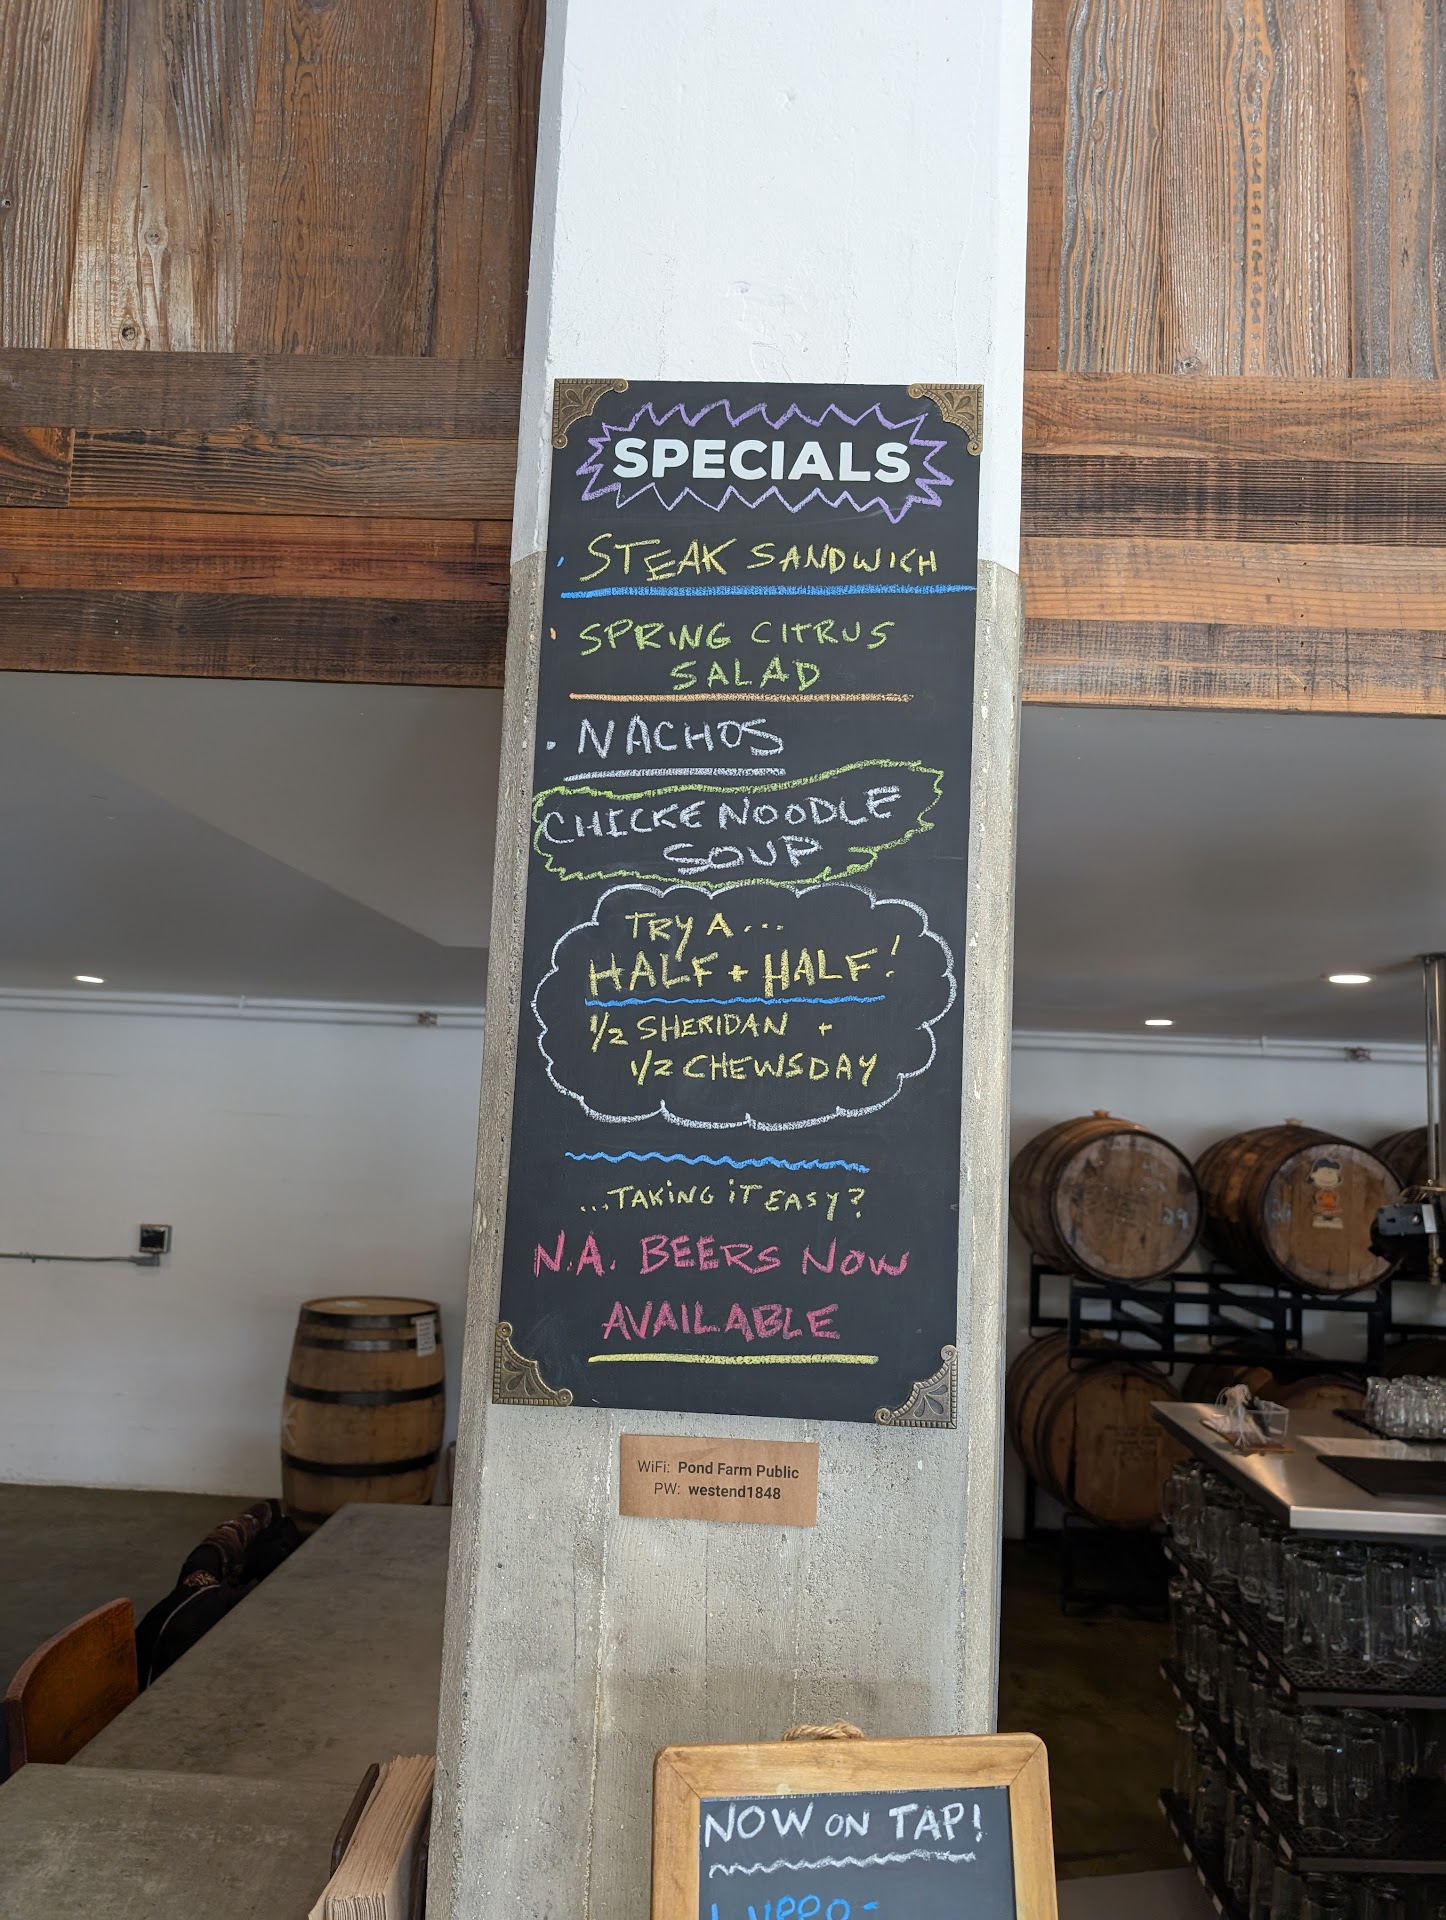 SPECIALS
· STEAK SANDWICH
· SPRING CITRUS
SALAD
· NACHOS
CHICKE NOODLE
SOUP
TRY A...
HALF + HALF!
1/2 SHERIDAN +
1/2 CHEWSDAY
...TAKING iT EASY?
N.A. BEERS NOW
AVAILABLE
WiFi: Pond Farm Public
PW: westend1848
NOW ON TAP!